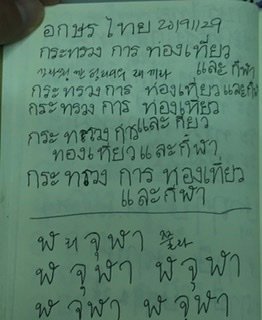 อกษร ไทย 20191129
กระทรวง การ ท่องเที่ยว
และ กีฬา
กระทรวง การ ท่องเที่ยวและกีฬา
กระทรวง การ ท่องเที่ยว
กระทรวงการและกีฬา
ท่องเที่ยวและกีฬา
กระทรวง การ ท่องเที่ยว
และกีฬา
ฬ หา จุฬา
ฬ จุฬา ฬ จุฬา
ฬ จุฬา ฬ จุฬา